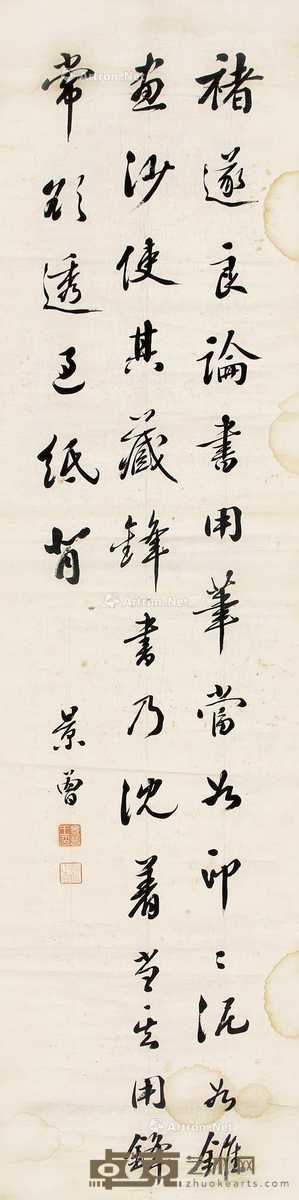 褚遂良論書用筆當如印〻泥如錐
畫沙使其藏鋒書乃沈著當其用鋒
常欲透過紙背
景曾
Artron.Net
zhuokearts.com